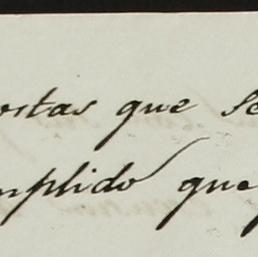 ostas que se
mplido que